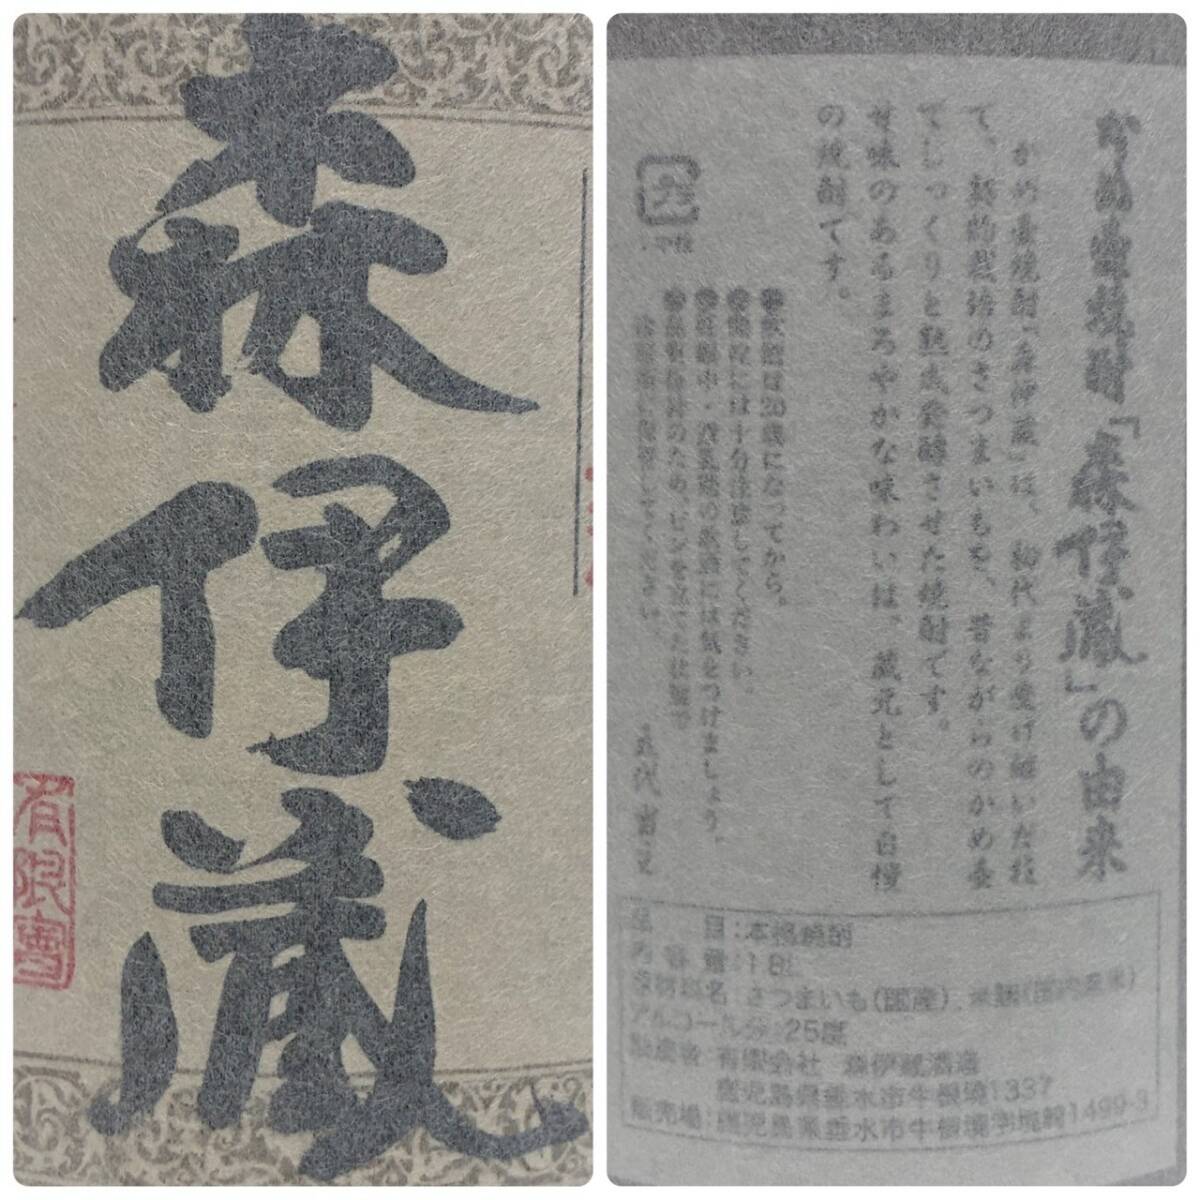 森伊蔵
有限會
かめ壷焼酎「森伊蔵」の由来
かめ壷焼酎「森伊蔵」は、初代より受け継いだ技
て、契約栽培のさつまいもを、昔ながらのかめ壷
でじっくりと熟成発酵させた焼酎です。
せ味のあるまろやかな味わいは、蔵元として自慢
の焼酎です。
●飲酒は20歳になってから。
には十分注意してください。
●妊娠中・授乳期の飲酒には気をつけましょう。
のため、ビンを立てた状態で
してください。
五代
品目:本格焼酎
内容量:1.8L
原材料名:さつまいも(国産)、米麹(国内産米)
アルコール分:25度
製造者:有限会社 森伊蔵酒造
鹿児島県垂水市牛根境1337
販売場:鹿児島県垂水市牛根境字境1499-3